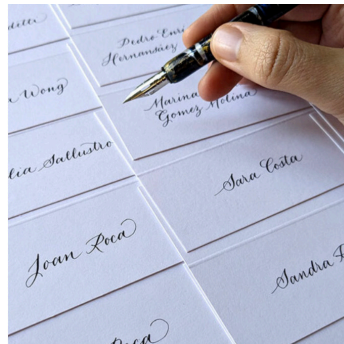 Pedro Enri
Hernansáez
Wong
Marina
Gomez Molina
lia Sallustro
Sara Costa
Joan Roca
Sandra R
Roca